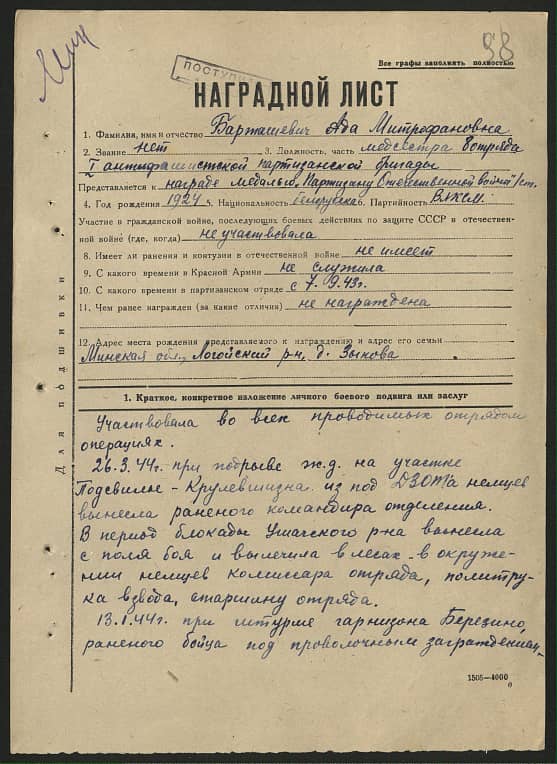 98
Все графы заполнять полностью
ПОСТУПИЛ
НАГРАДНОЙ ЛИСТ
1. Фамилия, имя и отчество Барташевич Ада Митрофановна
2. Звание нет 3. Должность, часть медсестра 8 отряда
I антифашистской партизанской бригады
Представляется к награде медалью „Партизану Отечественной войны" I ст.
4. Год рождения 1924 5. Национальность белоруска 6. Партийность ВЛКСМ
7. Участие в гражданской войне, последующих боевых действиях по защите СССР и отечествен-
ной войне (где, когда) не участвовала
8. Имеет ли ранения и контузии в отечественной войне не имеет
9. С какого времени в Красной Армии не служила
10. С какого времени в партизанском отряде с 7.9.43г.
11. Чем ранее награжден (за какие отличия) не награждена
12. Адрес места рождения представляемого к награждению и адрес его семьи
Минская обл. Логойский р-н, д. Зыкова
Для подшивки
1. Краткое, конкретное изложение личного боевого подвига или заслуг
Участвовала во всех проводимых отрядом
операциях.
26.3.44г. при подрыве ж.д. на участке
Подсвилье - Крулевщизна из под ДЗОТа немцев
вынесла раненого командира отделения.
В период блокады Ушачского р-на вынесла
с поля боя и вылечила в лесах - в окруже-
нии немцев комиссара отряда, политру-
ка взвода, старшину отряда.
13.1.44г. при штурме гарнизона Березино,
раненого бойца под проволочным заграждениям-
1505—4000